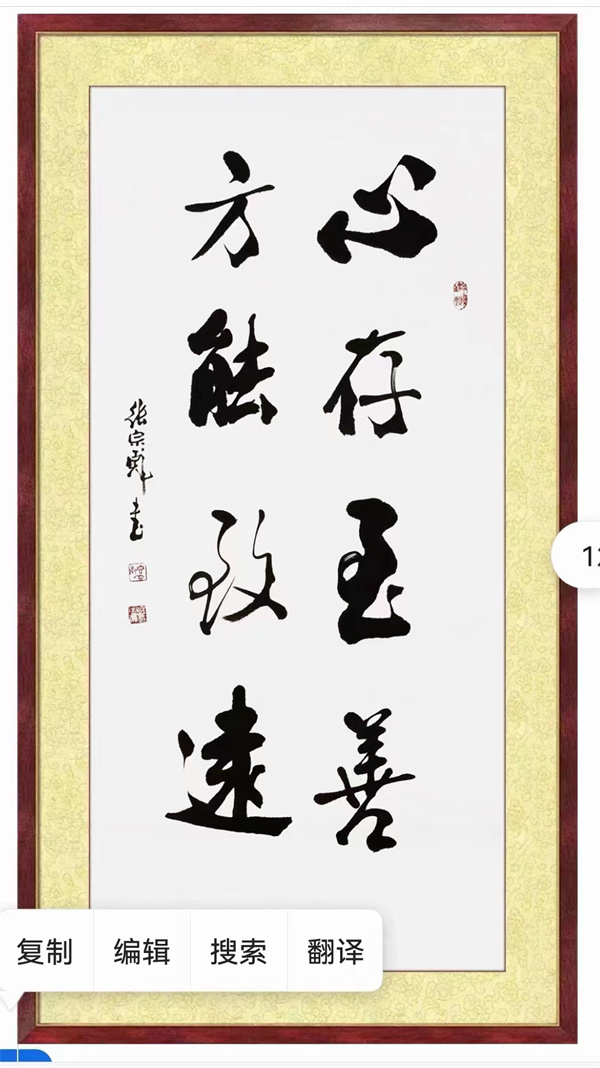 心存至善
方能致遠
张宗彪 书
复制 编辑 搜索 翻译